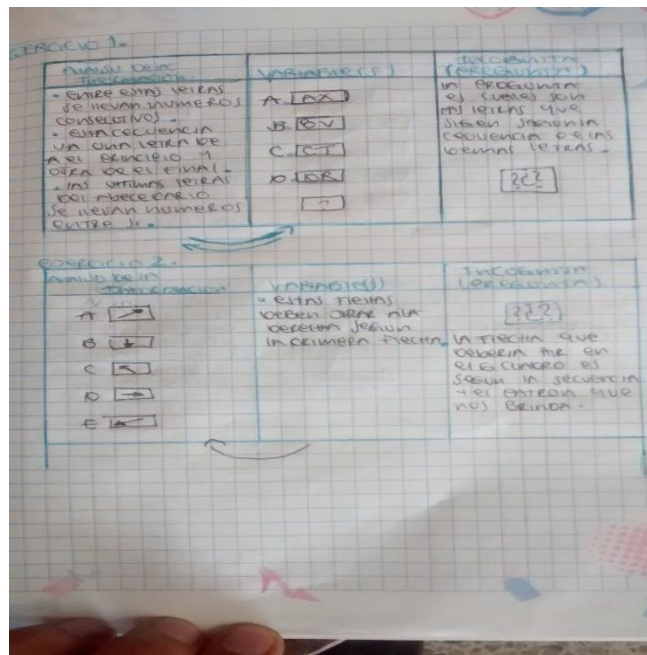 EJERCICIO 1-
ANALISIS DE LA
INFORMACION
VARIABLE(S)
INCOGNITA
(PREGUNTA)
- ENTRE ESTAS LETRAS
SE LLEVAN NUMEROS
CONSECUTIVOS.
- ESTA CECUENCIA
VA UNA LETRA DE
A EL PRINCIPIO Y
OTRA DE EL FINAL.
- LAS ULTIMAS LETRAS
DEL ABECEDARIO
SE LLEVAN NUMEROS
ENTRE SI.
A. AX
B. BV
C. CT
D. DR
?
LA PREGUNTA
ES CUALES SON
LAS LETRAS QUE
SIGEN SEGUN LA
CECUENCIA DE LAS
DEMAS LETRAS.
¿¿?
EJERCICIO 2-
ANALISIS DE LA
INFORMACION
VARIABLE(S)
INCOGNITA
(PREGUNTA)
A
B
C
D
E
- ESTAS FLECHAS
DEBEN GIRAR A LA
DERECHA SEGUN
LA PRIMERA FLECHA.
¿¿?
LA FLECHA QUE
DEBERIA IR EN
EL 6 CUADRO ES
SEGUN LA SECUENCIA
Y EL PATRON QUE
NOS BRINDA.